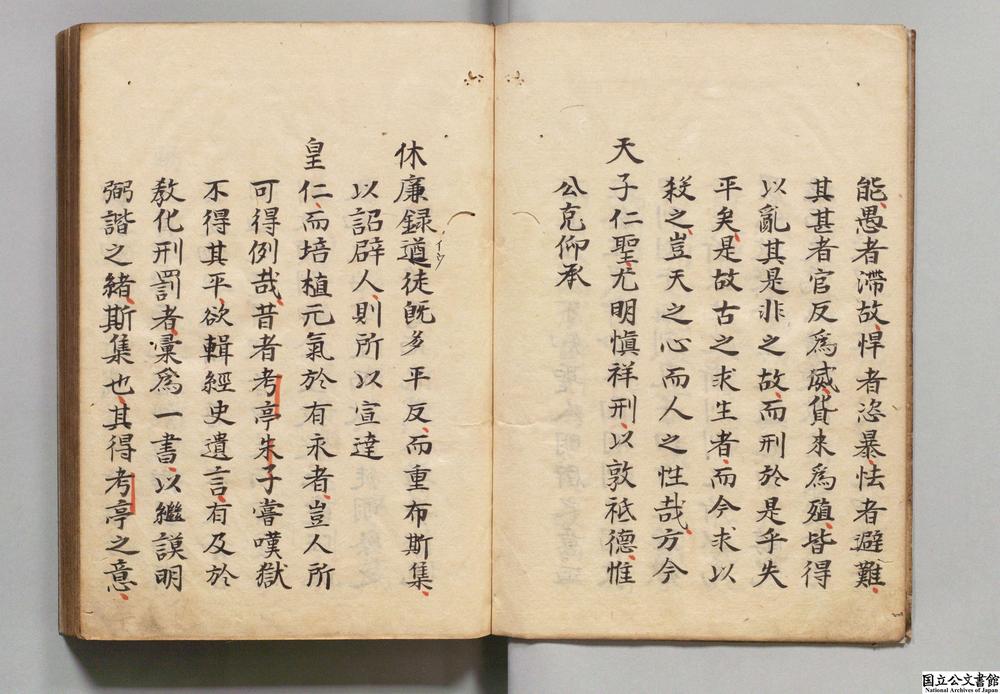 能愚者滯故悍者恣暴怯者避難
其甚者官反爲威貨來爲殖皆得
以亂其是非之故而刑於是乎失
平矣是故古之求生者而今求以
殺之豈天之心而人之性哉方今
天子仁聖尤明愼祥刑以敦祇德惟
公克仰承
休廉録遒徒既多平反而重布斯集
イウ
以詔辟人則所以宣達
皇仁而培植元氣於有永者豈人所
可得例哉昔者考亭朱子嘗嘆獄
不得其平欲輯經史遺言有及於
教化刑罰者彙爲一書以繼謨明
弼諧之緒斯集也其得考亭之意
国立公文書館
National Archives of Japan